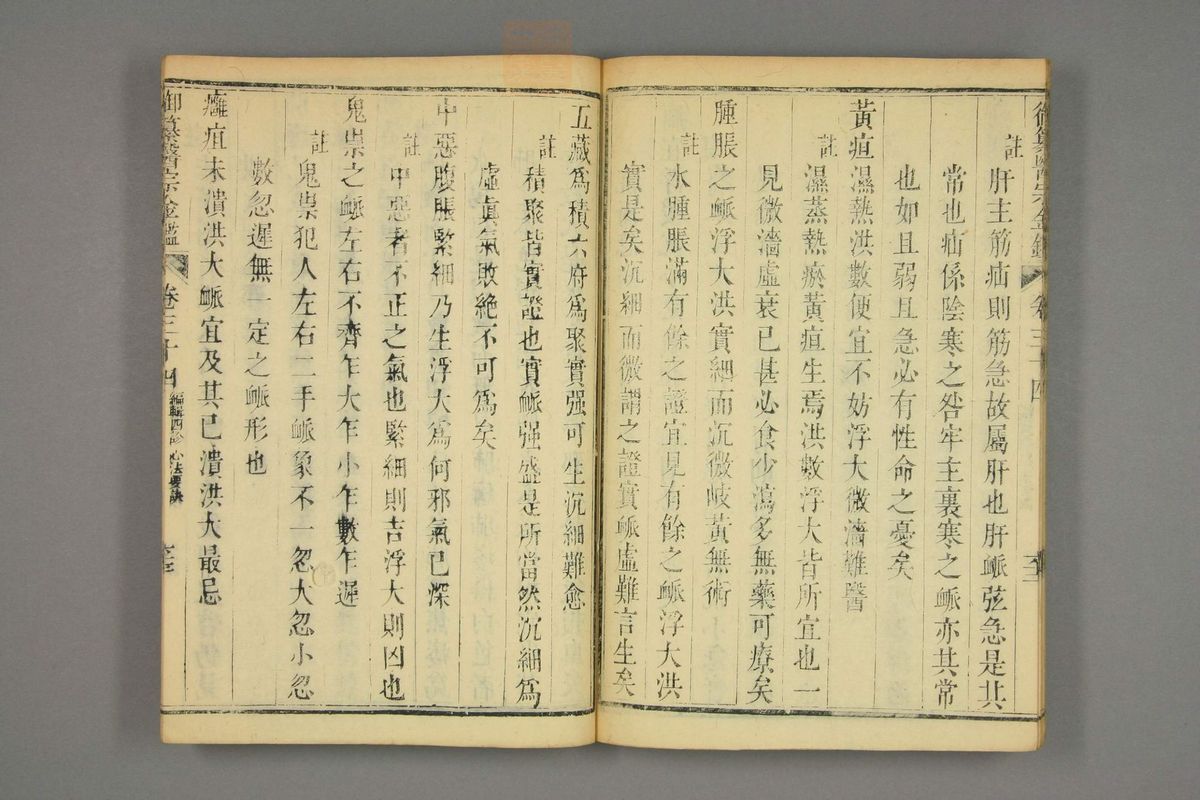 御纂醫宗金鑑 卷三十四
註肝主筋疝則筋急故屬肝也肝脈弦急是其
常也疝係陰寒之咎牢主裏寒之脈亦其常
也如且弱且急必有性命之憂矣
黃疸濕熱洪數便宜不妨浮大微濇難醫
註濕蒸熱瘀黃疸生焉洪數浮大皆所宜也一
見微濇虛衰已甚必食少瀉多無藥可療矣
腫脹之脈浮大洪實細而沉微岐黃無術
註水腫脹滿有餘之證宜見有餘之脈浮大洪
實是矣沉細而微謂之證實脈虛難言生矣
五藏為積六府為聚實强可生沉細難愈
註積聚皆實證也實脈强盛是所當然沉細為
虛真氣敗絶不可為矣
中惡腹脹緊細乃生浮大為何邪氣已深
註中惡者不正之氣也緊細則吉浮大則凶也
鬼祟之脈左右不齊乍大乍小乍數乍遲
註鬼祟犯人左右二手脈象不一忽大忽小忽
數忽遲無一定之脈形也
癰疽未潰洪大脈宜及其已潰洪大最忌
御纂醫宗金鑑 卷三十四 編輯四診心法要訣